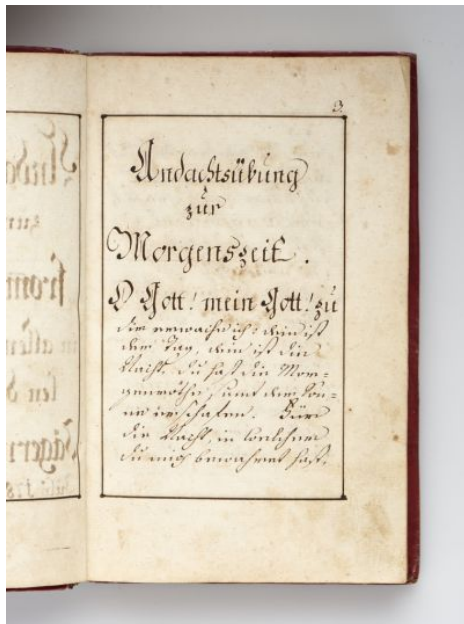 3.
Andachtsübung
zur
Morgenszeit.
O Gott! mein Gott! zu
dir erwache ich: dein ist
der Tag, dein ist die
Nacht. Du hast die Mor=
genröthe, samt der Son=
ne erschafen. Für
die Nacht, in welcher
du mich bewahret hast,